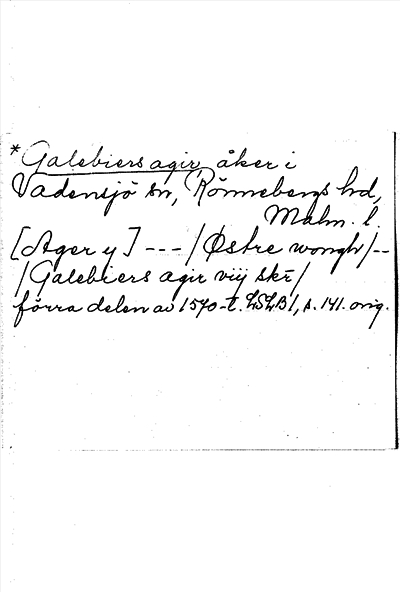 *Galebiers agir, åker i
Vadensjö sn, Rönnebergs hd,
Malm. l.
[Ager y] --- / Østre wongh / --
/ Galebiers agir viij skr /
förra delen av 1570-t. LSLB1, s. 141. orig.